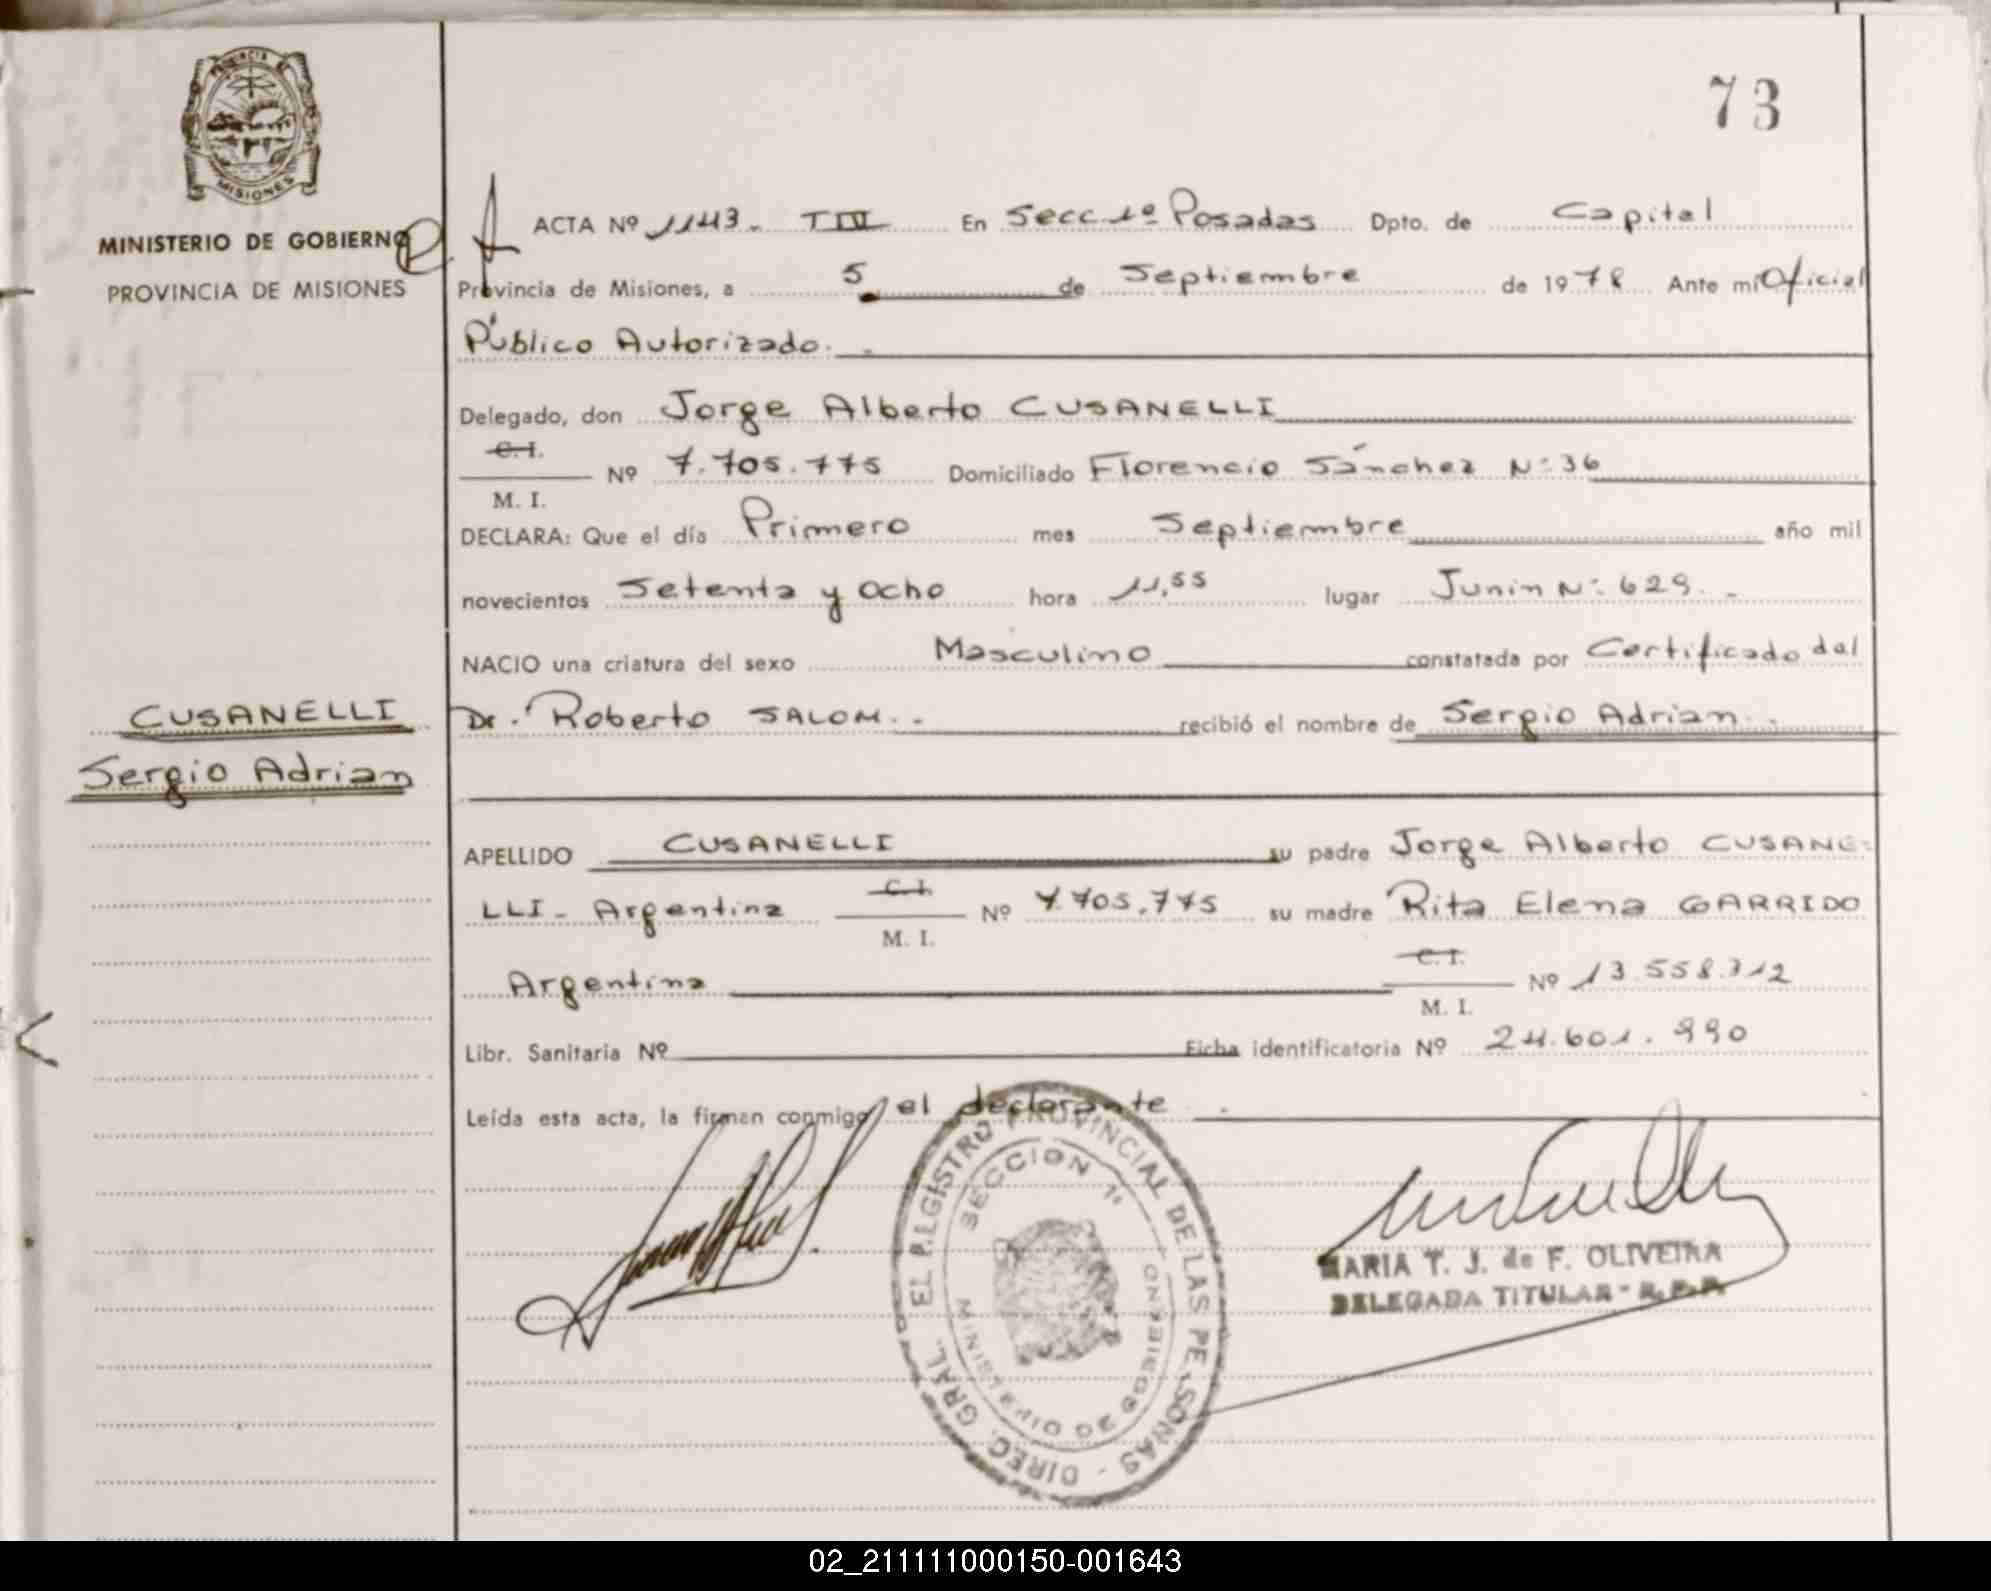 73
PROVINCIA DE
MISIONES
MINISTERIO DE GOBIERNO
PROVINCIA DE MISIONES
ACTA Nº 1143. TIV En Secc 1º Posadas Dpto. de Capital
Provincia de Misiones, a 5 de Septiembre de 1978 Ante mi Oficial
Público Autorizado.
Delegado, don Jorge Alberto CUSANELLI
C.I.
M. I.
Nº 7.705.775 Domiciliado Florencio Sánchez Nº 36
DECLARA: Que el día Primero mes Septiembre año mil
novecientos Setenta y Ocho hora 11,55 lugar Junin Nº 629.
NACIO una criatura del sexo Masculino constatada por Certificado del
Dr. Roberto SALOM. recibió el nombre de Sergio Adrian.
CUSANELLI
Sergio Adrian
APELLIDO CUSANELLI su padre Jorge Alberto CUSANE-
LLI - Argentina C.I. Nº 7.705.775 su madre Rita Elena GARRIDO
M. I.
Argentina C.I. Nº 13.558.712
M. I.
Libr. Sanitaria Nº Ficha identificatoria Nº 24.601.990
Leída esta acta, la firman conmigo el declarante.
DIREC. GRAL. EL REGISTRO PROVINCIAL DE LAS PERSONAS -
SECCION 1º
MINISTERIO DE GOBIERNO
MARIA T. J. de F. OLIVEIRA
DELEGADA TITULAR - R. P. P.
02_211111000150-001643